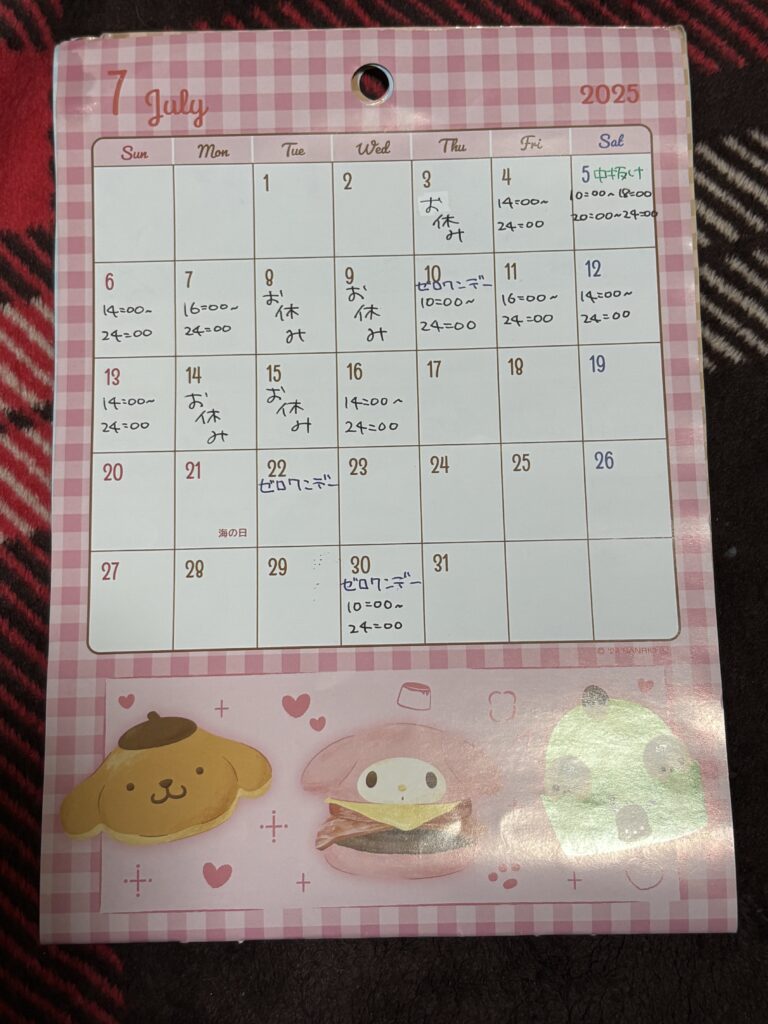 7 July 2025
Sun Mon Tue Wed Thu Fri Sat
1 2 3 4 5 中抜け
お休み
14=00~
24=00
10=00~18=00
20=00~24=00
6 7 8 9 10 11 12
14=00~
24=00
16=00~
24=00
お休み
お休み
ゼロワンデー
10=00~
24=00
16=00~
24=00
14=00~
24=00
13 14 15 16 17 18 19
14=00~
24=00
お休み
お休み
14=00~
24=00
20 21 22 23 24 25 26
海の日
ゼロワンデー
27 28 29 30 31
ゼロワンデー
10=00~
24=00